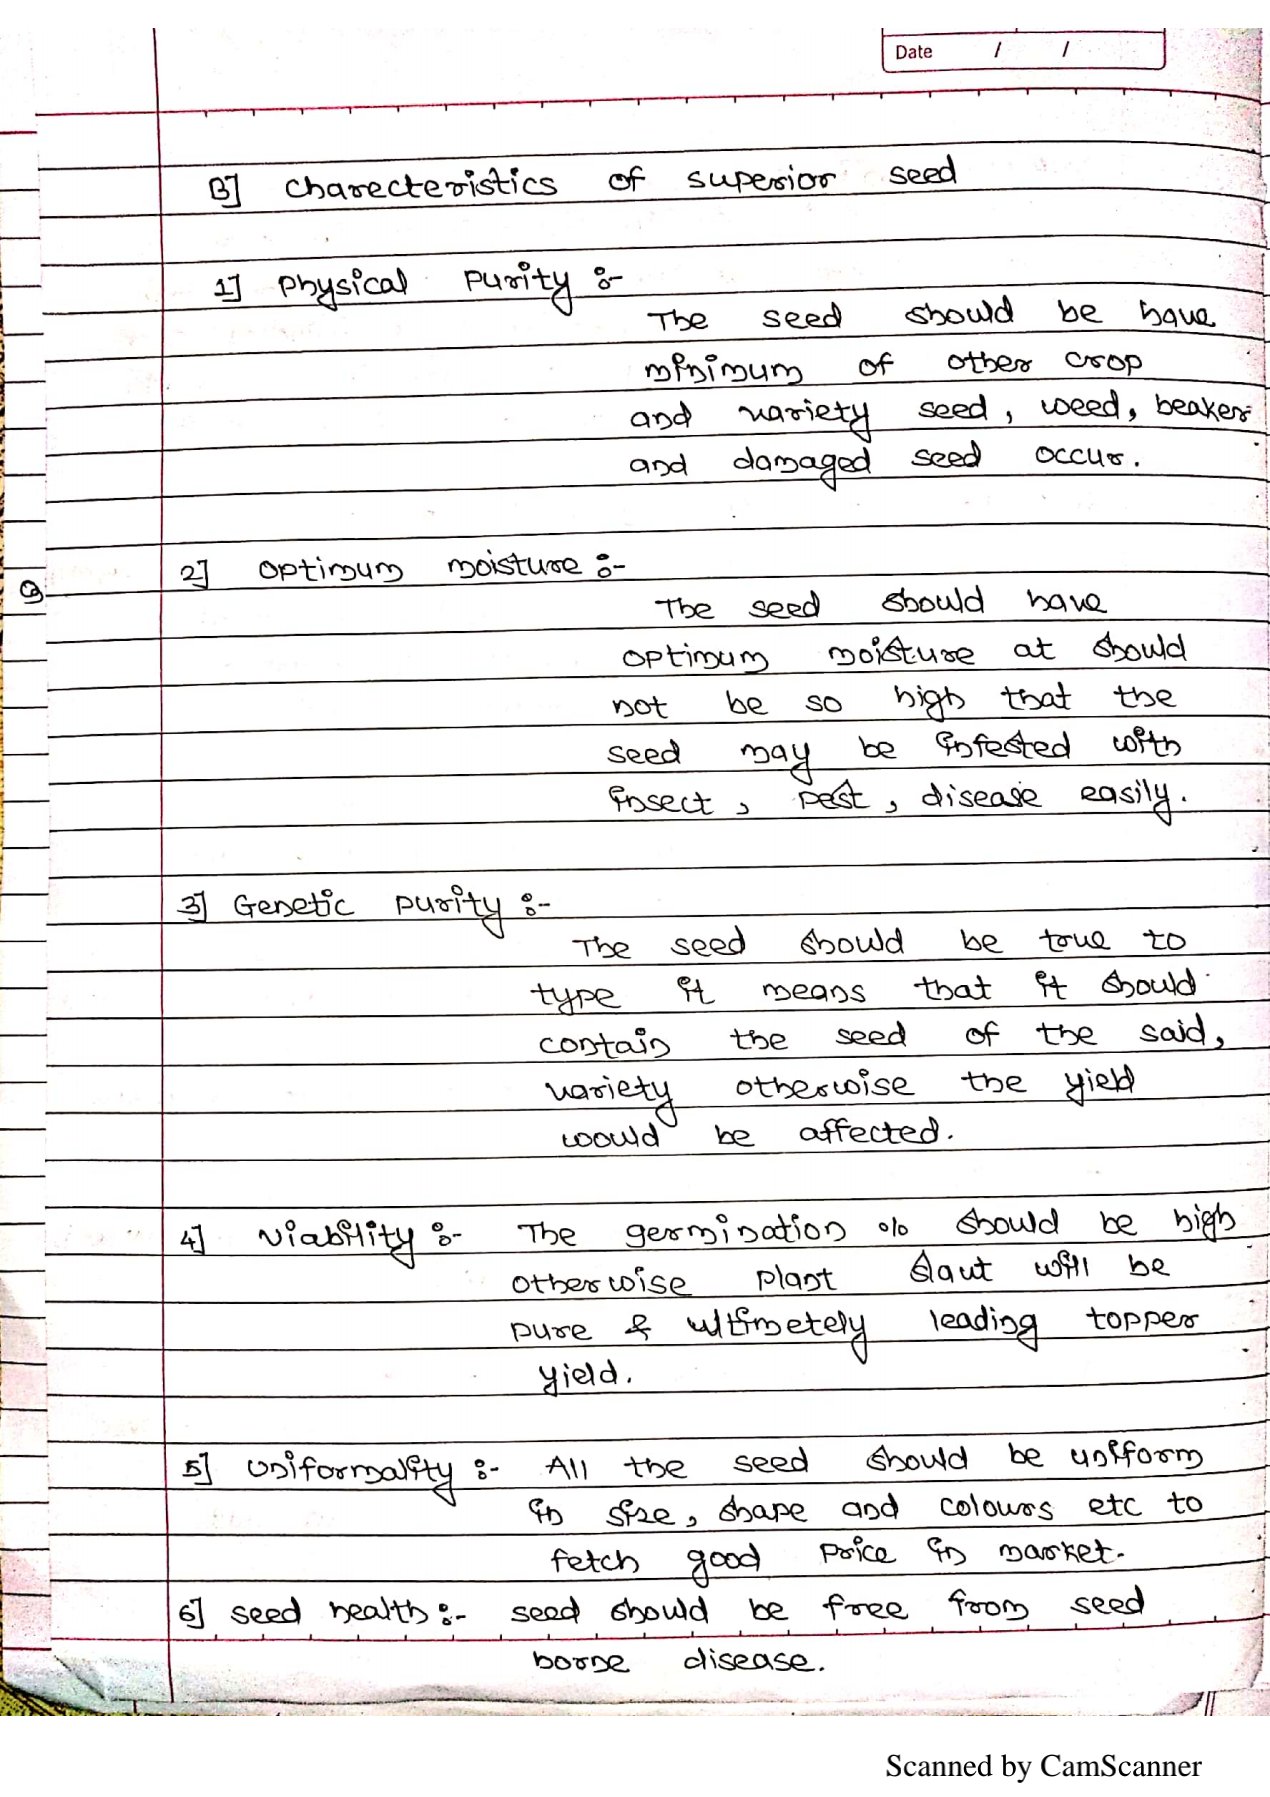 Date / /
B] Charecteristics of superior seed
1] Physical purity :-
The seed should be have
minimum of other crop
and variety seed, weed, beaker
and damaged seed occur.
2] Optimum moisture :-
The seed should have
optimum moisture at should
not be so high that the
seed may be infested with
insect, pest, disease easily.
3] Genetic purity :-
The seed should be true to
type it means that it should
contain the seed of the said,
variety otherwise the yield
would be affected.
4] Viability :- The germination % should be high
otherwise plant slaut will be
pure & ultimetely leading topper
yield.
5] Uniformality :- All the seed should be uniform
in size, shape and colours etc to
fetch good price in market.
6] seed health :- seed should be free from seed
borne disease.
Scanned by CamScanner